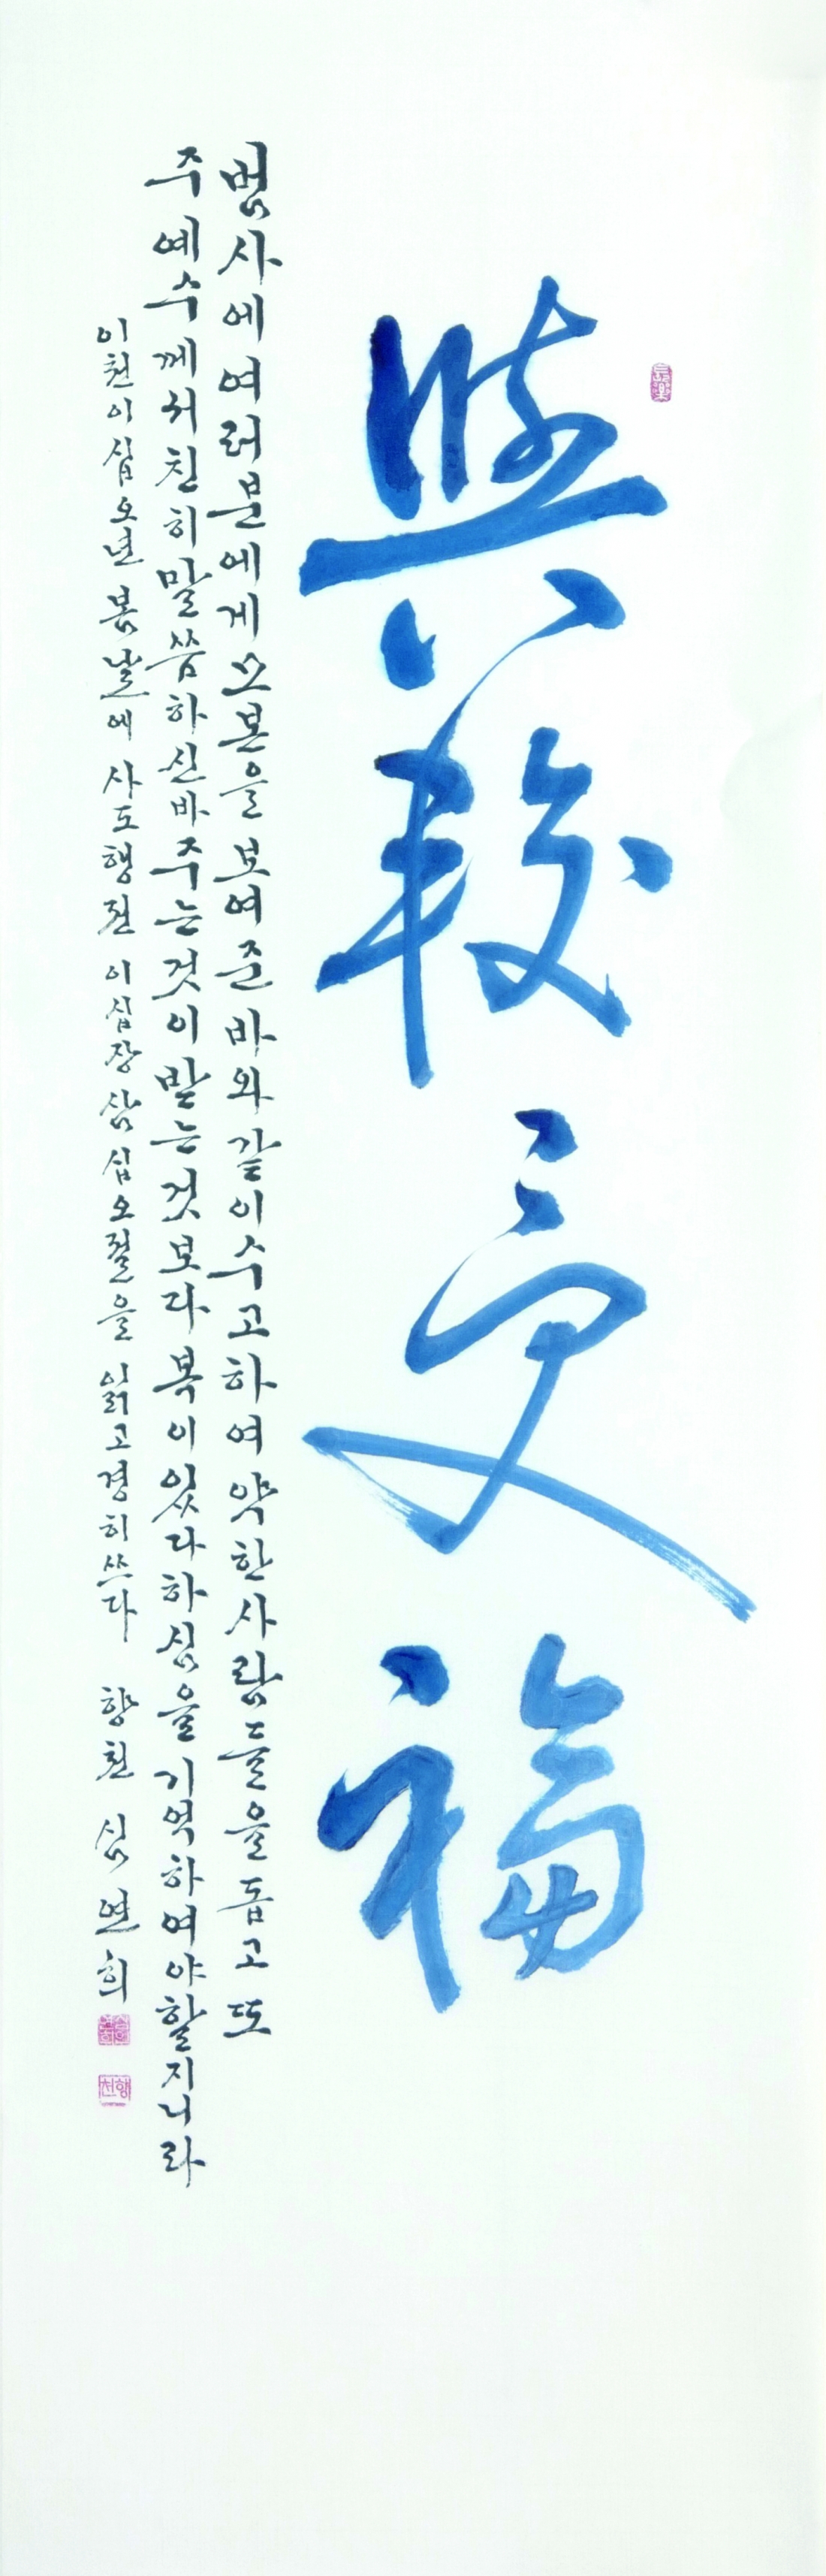 與較受福
범사에여러분에게모본을보여준바와같이수고하여약한사람들을돕고또
주예수께서친히말씀하신바주는것이받는것보다복이있다하심을기억하여야할지니라
이천이십오년 봄날에 사도행전 이십장삼십오절을 읽고경히쓰다 향천 심연희